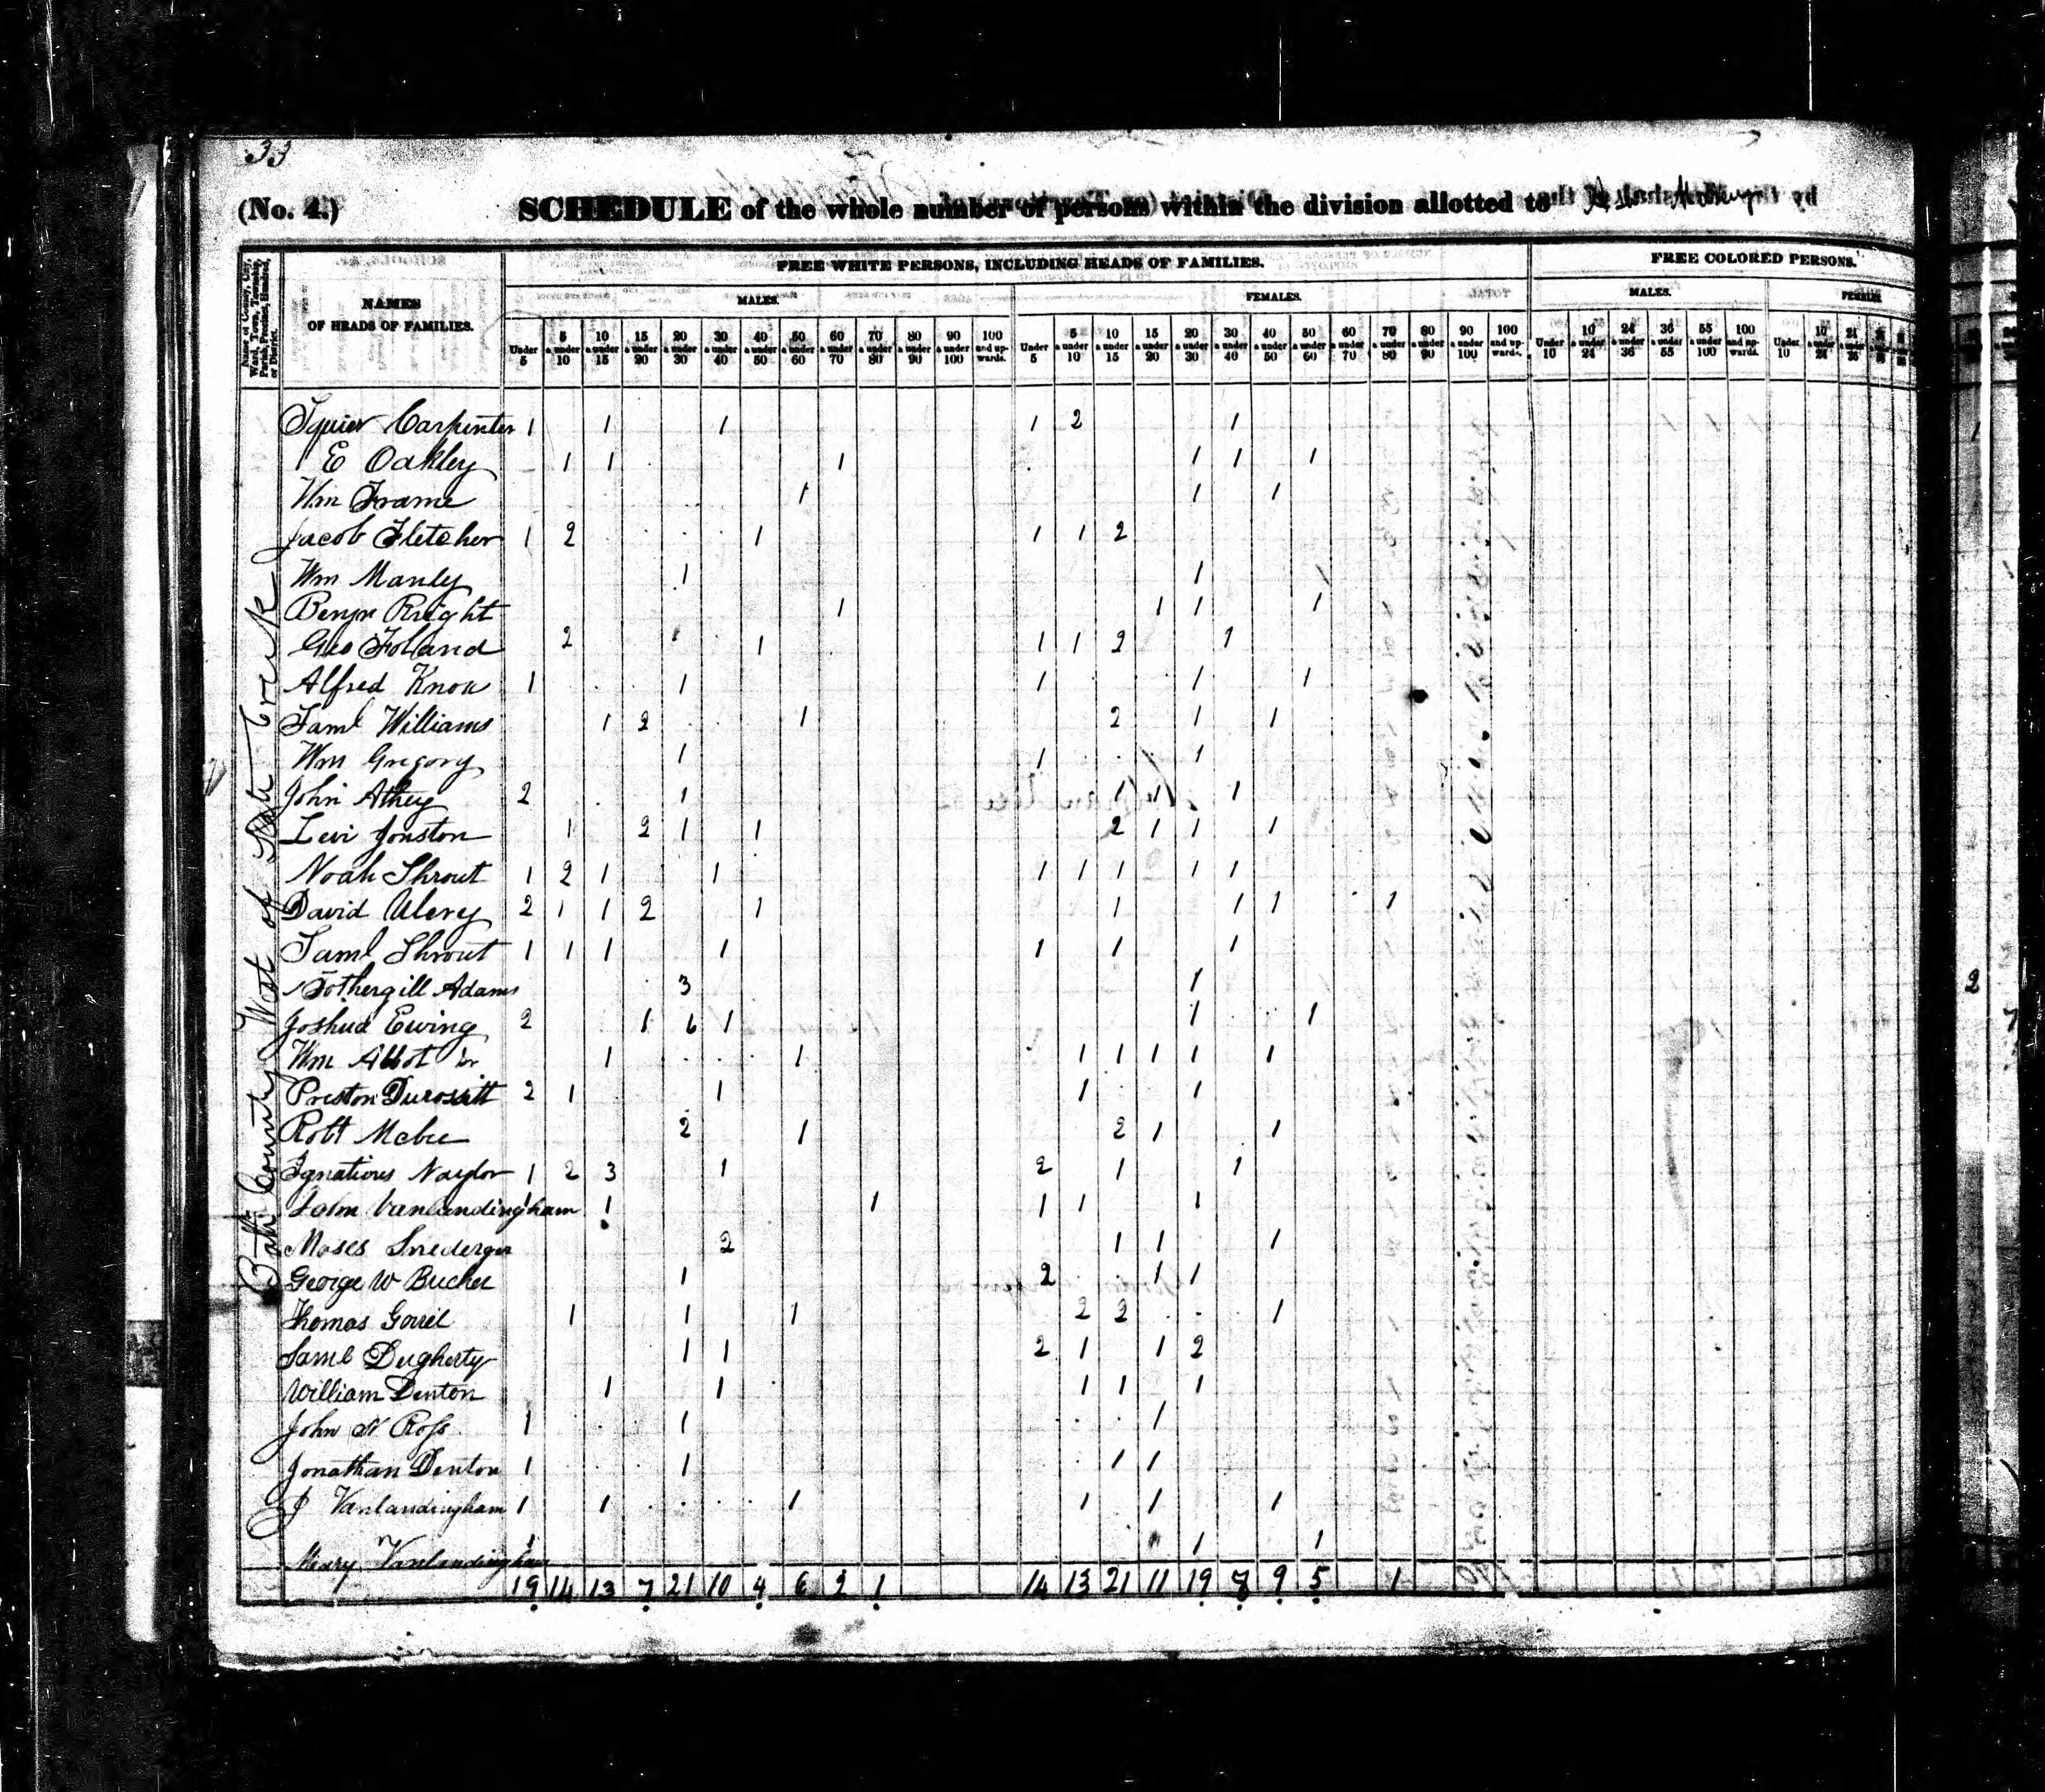 33
(No. 4.) SCHEDULE of the whole number of persons within the division allotted to
Name of County, City, Ward, Town, Township, Parish, Precinct, Hundred, or District.
NAMES OF HEADS OF FAMILIES.
FREE WHITE PERSONS, INCLUDING HEADS OF FAMILIES.
FREE COLORED PERSONS.
MALES. FEMALES. MALES. FEMALES
Under 5 5 & under 10 10 & under 15 15 & under 20 20 & under 30 30 & under 40 40 & under 50 50 & under 60 60 & under 70 70 & under 80 80 & under 90 90 & under 100 100 and upwards.
Under 5 5 & under 10 10 & under 15 15 & under 20 20 & under 30 30 & under 40 40 & under 50 50 & under 60 60 & under 70 70 & under 80 80 & under 90 90 & under 100 100 and upwards.
Under 10 10 & under 24 24 & under 36 36 & under 55 55 & under 100 100 and upwards. Under 10 10 & under 24
Bath County West of Slate Creek
Squier Carpenter 1 1 1 1 2 1
E Oakley 1 1 1 1 1 1
Wm Frame 1 1 1
Jacob Fletcher 1 2 1 1 1 2
Wm Manly 1 1 1
Benjn Right 1 1 1 1
Geo Foland 2 1 1 1 1 2 1
Alfred Knox 1 1 1 1 1
Saml Williams 1 2 1 2 1 1
Wm Gregory 1 1 1
John Athey 2 1 1 1 1
Levi Jonston 1 2 1 1 2 1 1 1
Noah Shrout 1 2 1 1 1 1 1 1 1
David Ulery 2 1 1 2 1 1 1 1 1
Saml Shrout 1 1 1 1 1 1 1
Fothergill Adams 3 1
Joshua Ewing 2 1 6 1 1 1
Wm Abbot 1 1 1 1 1 1 1
Preston Durossitt 2 1 1 1 1
Robt Mcbee 2 1 2 1 1
Ignatious Naylor 1 2 3 1 2 1 1
Vanlandingham 1 1 1 1 1 1
Moses Snedergar 2 1 1 1
George W Bucher 1 2 1 1
Thomas Gorrel 1 1 1 2 2 1
Saml Dugherty 1 1 2 1 1 2
William Denton 1 1 1 1 1
John N Ross 1 1 1
Jonathan Denton 1 1 1 1
J Vanlandingham 1 1 1 1 1 1
Mary Vanlandingham 1 1 1
19 14 13 7 21 10 4 6 2 1 14 13 21 11 19 8 9 5 1